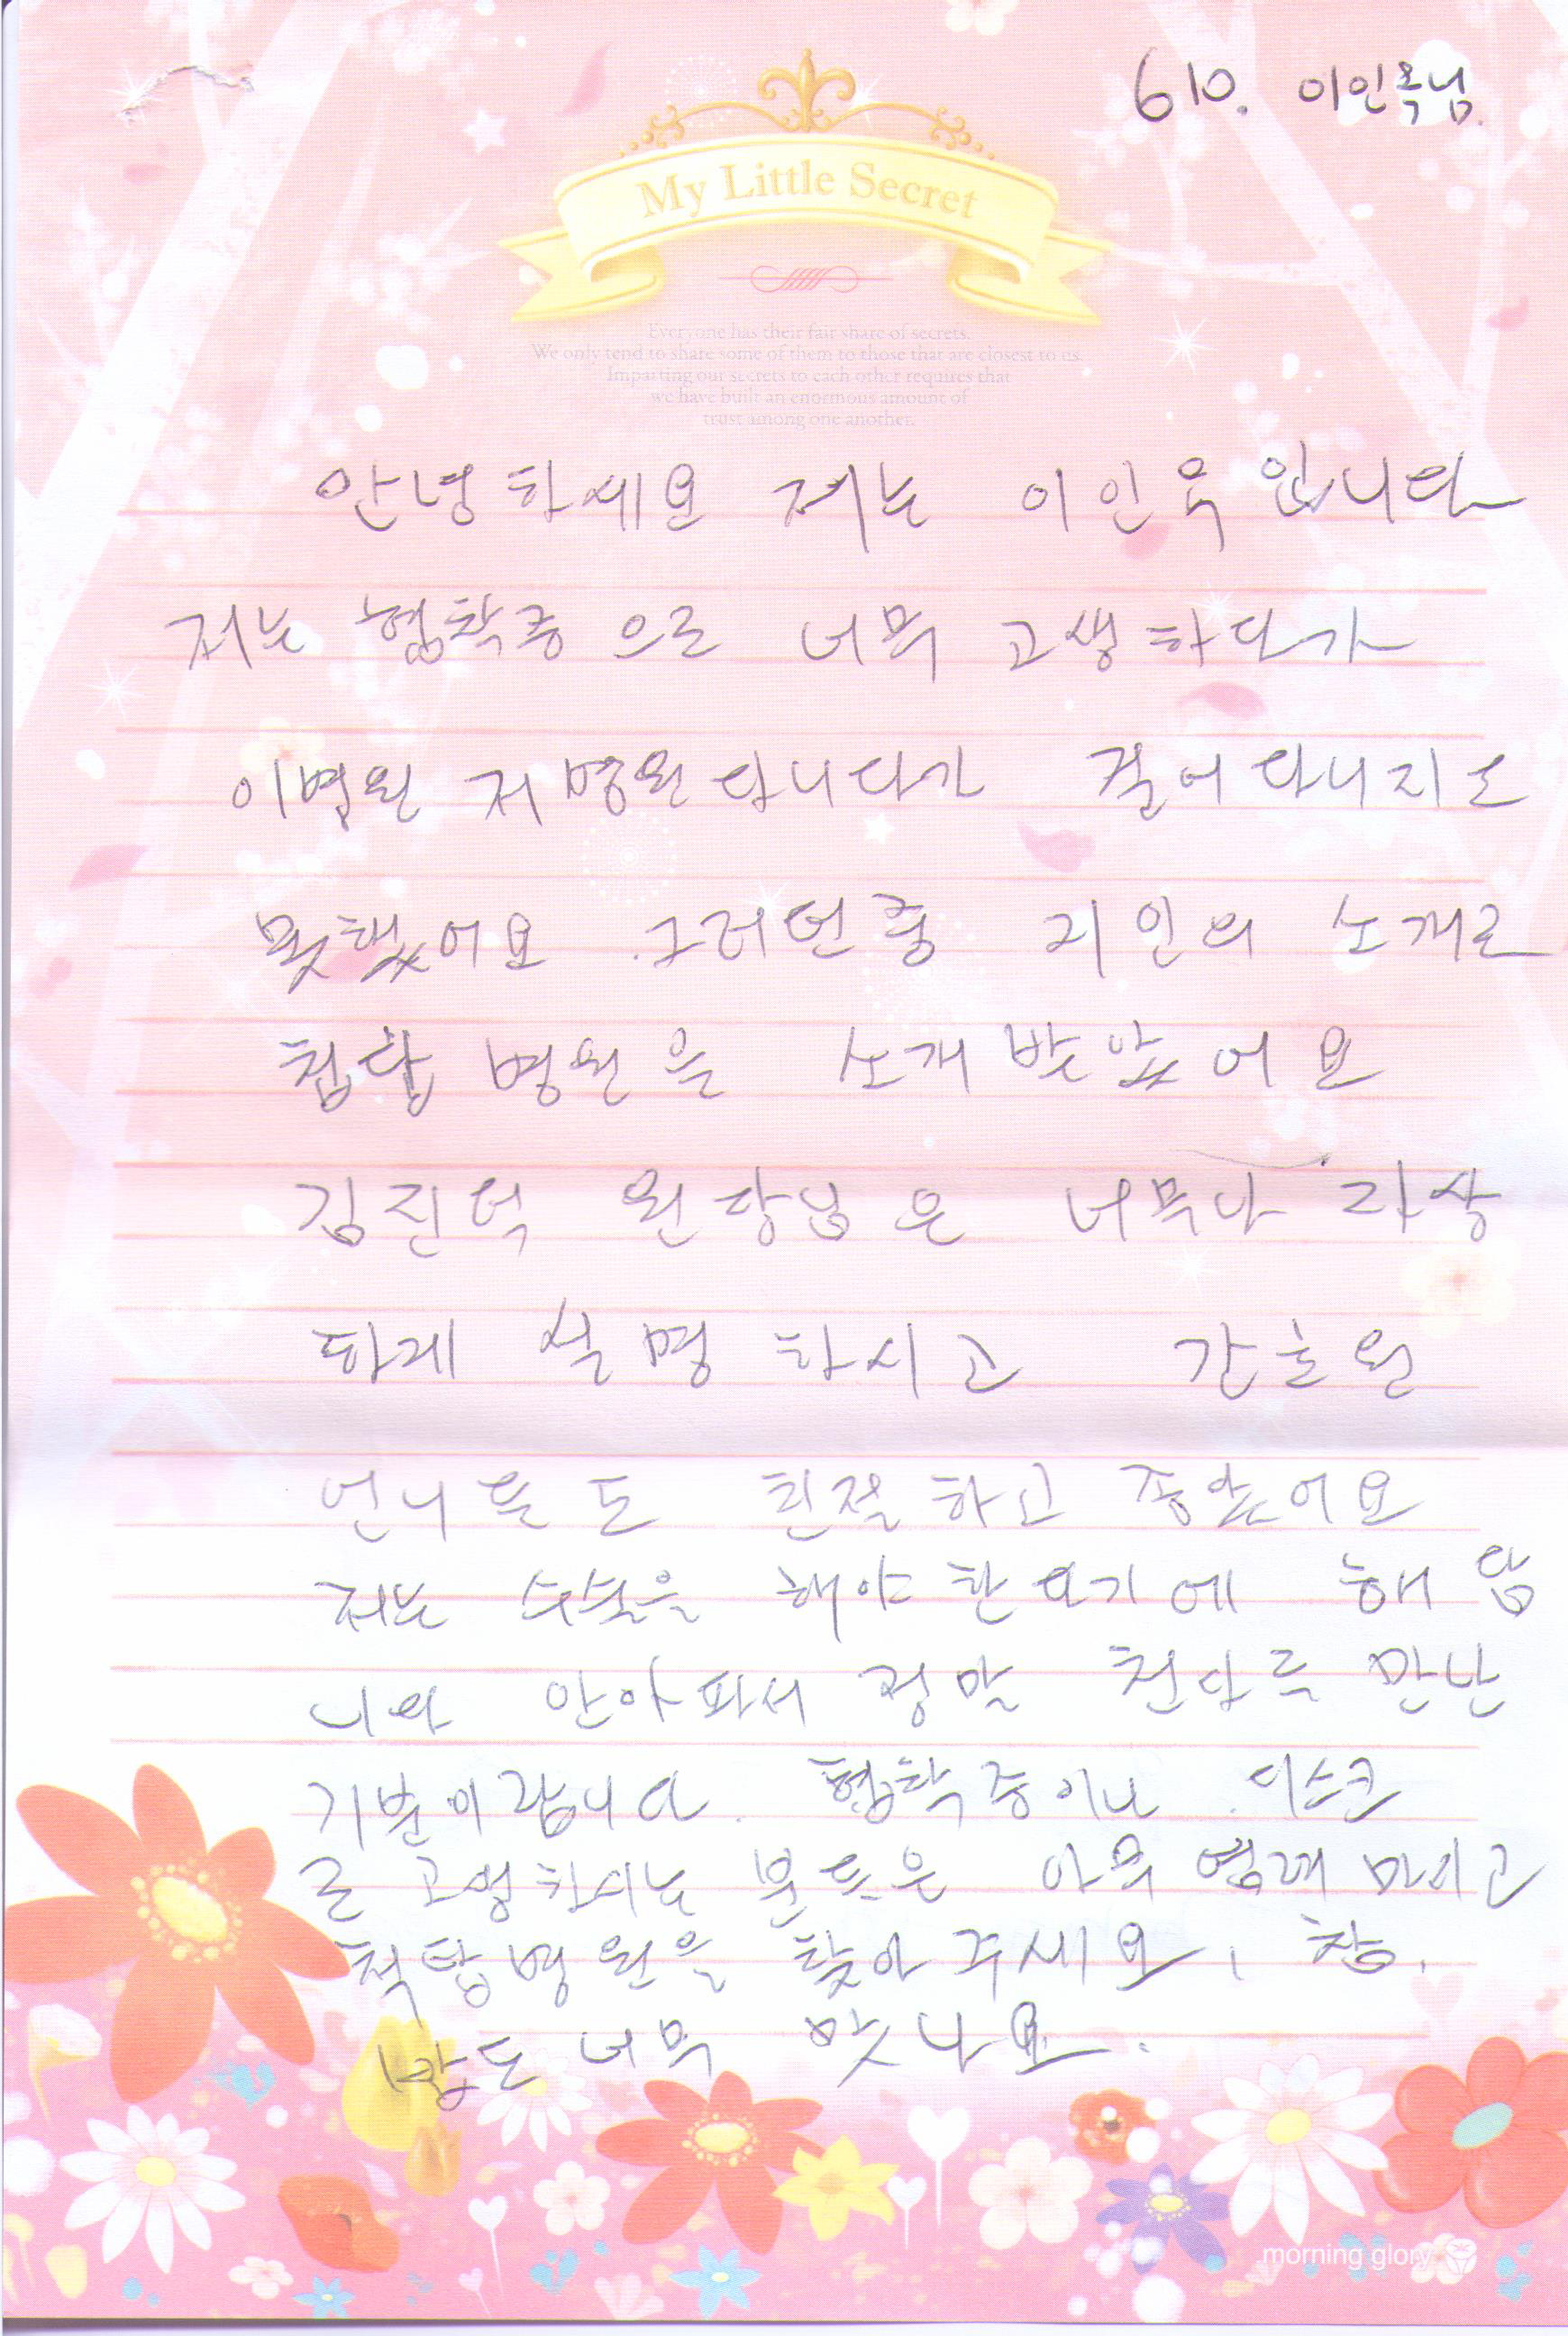 610. 이인옥님.
My Little Secret
Everyone has their fair share of secrets.
We only tend to share some of them to those that are closest to us.
Imparting our secrets to each other requires that
we have built an enormous amount of
trust among one another.
안녕하세요 저는 이인옥 입니다
저는 협착증으로 너무 고생하다가
이병원 저병원다니다가 걸어다니지도
못했어요 그러던중 지인의 소개로
첨단 병원을 소개 받았어요
김진덕 원장님은 너무나 자상
하게 설명 하시고 간호원
언니들도 친절하고 좋았어요
저는 수술을 해야한다기에 했답
니다 안아파서 정말 천사를 만난
기분이랍니다. 협착증이나 디스크
로 고생하시는 분들은 아무 염려 마시고
척탑병원을 찾아주세요, 참.
밥도 너무 맛나요.
morning glory